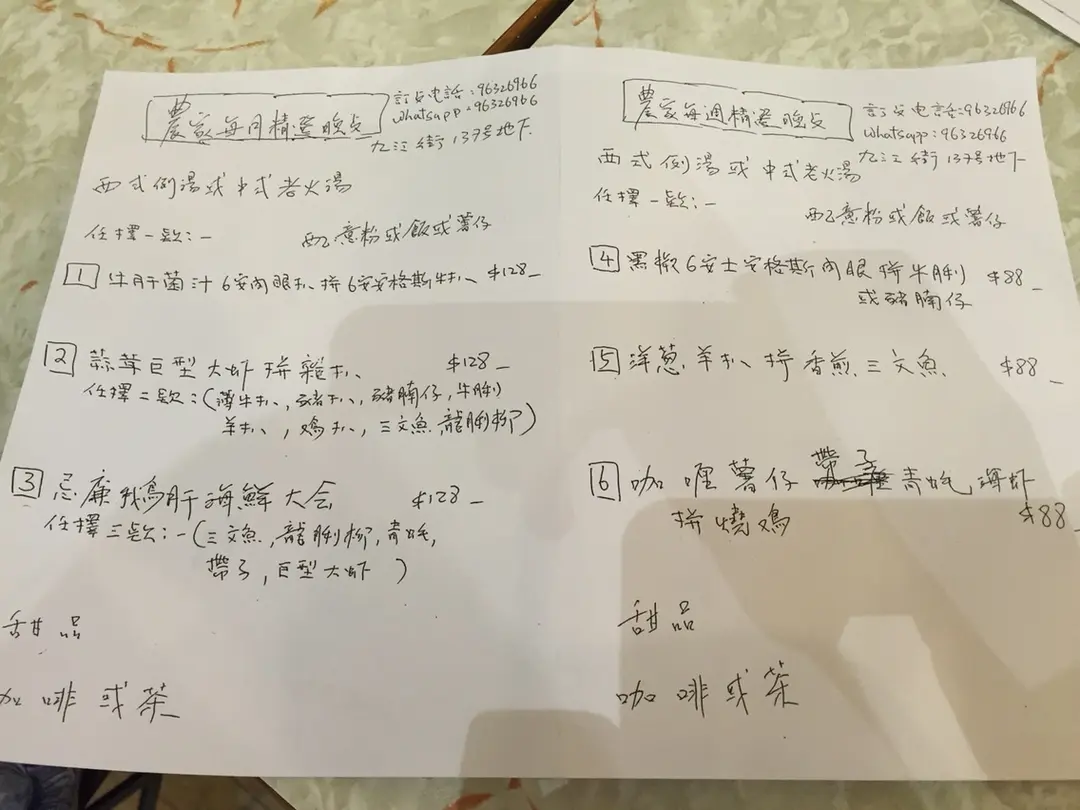 農家每月精選晚点
訂位电話:96326966
whatsapp:96326966
九江街137号地下
西式例湯或中式老火湯
任擇一款:-
配意粉或飯或薯仔
1 牛肝菌汁6安肉眼扒拼6安安格斯牛扒 $128-
2 蒜茸巨型大虾拼雜扒 $128-
任擇二款:(薄牛扒,豬扒,豬腩仔,牛脷
羊扒,鸡扒,三文魚,龍脷柳)
3 忌廉鹅肝海鮮大会 $128-
任擇三款:-(三文魚,龍脷柳,青蚝,
帶子,巨型大虾)
甜品
咖啡或茶
農家每週精選晚点
訂位电話:96326966
whatsapp:96326966
九江街137号地下
西式例湯或中式老火湯
任擇一款:-
配意粉或飯或薯仔
4 黑椒6安士安格斯肉眼拼牛脷 $88-
或豬腩仔
5 洋葱羊扒拼香煎三文魚 $88-
6 咖喱薯仔帶子青蚝海虾
拼燒鸡 $88-
甜品
咖啡或茶